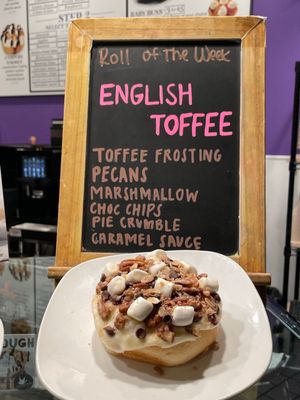 STEP 2
BABY BUNS
Roll of The Week
ENGLISH
TOFFEE
TOFFEE FROSTING
PECANS
MARSHMALLOW
CHOC CHIPS
PIE CRUMBLE
CARAMEL SAUCE